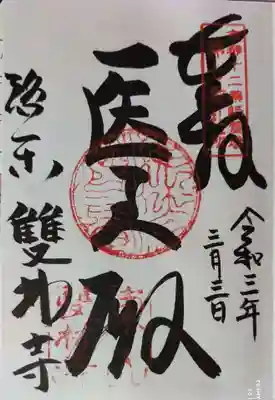 奉拝
令和三年
三月三日
医王殿
洛東 雙林寺